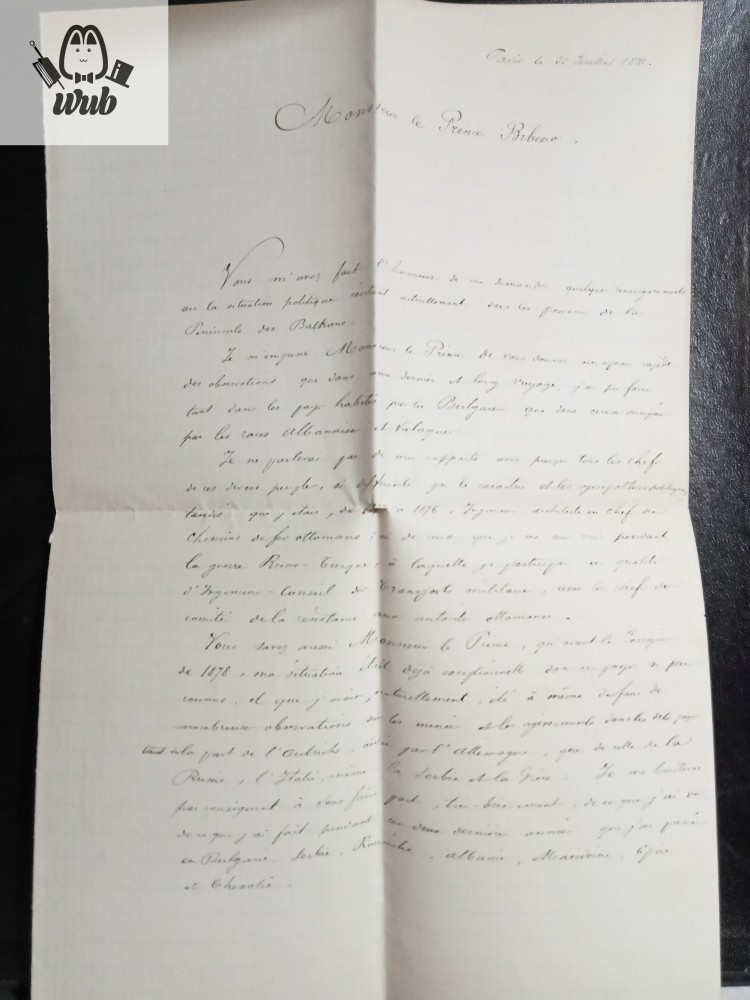 wub
Paris le 21 Juillet 1881.
Monsieur le Prince Bibesco,
Vous m'avez fait l'honneur de me demander quelques renseignements
sur la situation politique existant actuellement dans les de la
Péninsule des Balkans.
Je m'empresse Monsieur le Prince de vous donner un aperçu rapide
des observations que dans mon dernier et long voyage, j'ai pu faire
tant dans les pays habités par les Bulgares que dans ceux occupés
par les races Albanaise et Valaque.
Je ne parlerai pas de mes rapports avec presque tous les chefs
de ces divers peuples, si différents par le caractère et les sympathies politiques
tandis que j'étais, de à 1876, Ingénieur architecte en chef des
chemins de fer ottomans, ni de ceux que j'ai eus pendant
la guerre Russo-Turque à laquelle je participai en qualité
d'Ingénieur-Conseil des Transports militaires, avec les chefs du
comité de la résistance aux autorités ottomanes.
Vous savez aussi Monsieur le Prince, qu'avant le Congrès
de 1878, ma situation était déjà exceptionnelle dans ce pays si peu
connus, et que j'avais, naturellement, été à même de faire de
nombreuses observations sur les menées et les agissements dans les dits pays
tant de la part de l'Autriche, aidée par l'Allemagne, que de celle de la
Russie, l'Italie, même la Serbie et la Grèce. Je me bornerai
par conséquent à vous faire part, très-brièvement, de ce que j'ai vu
de ce que j'ai fait pendant ces deux dernières années que j'ai passées
en Bulgarie, Serbie, Roumélie, Albanie, Macédoine, Epire
et Thessalie.